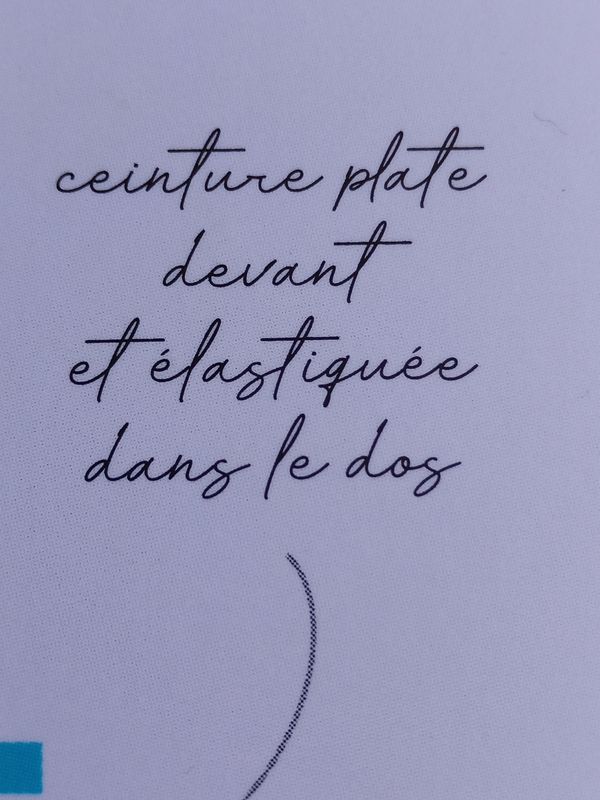 ceinture plate
devant
et élastiquée
dans le dos